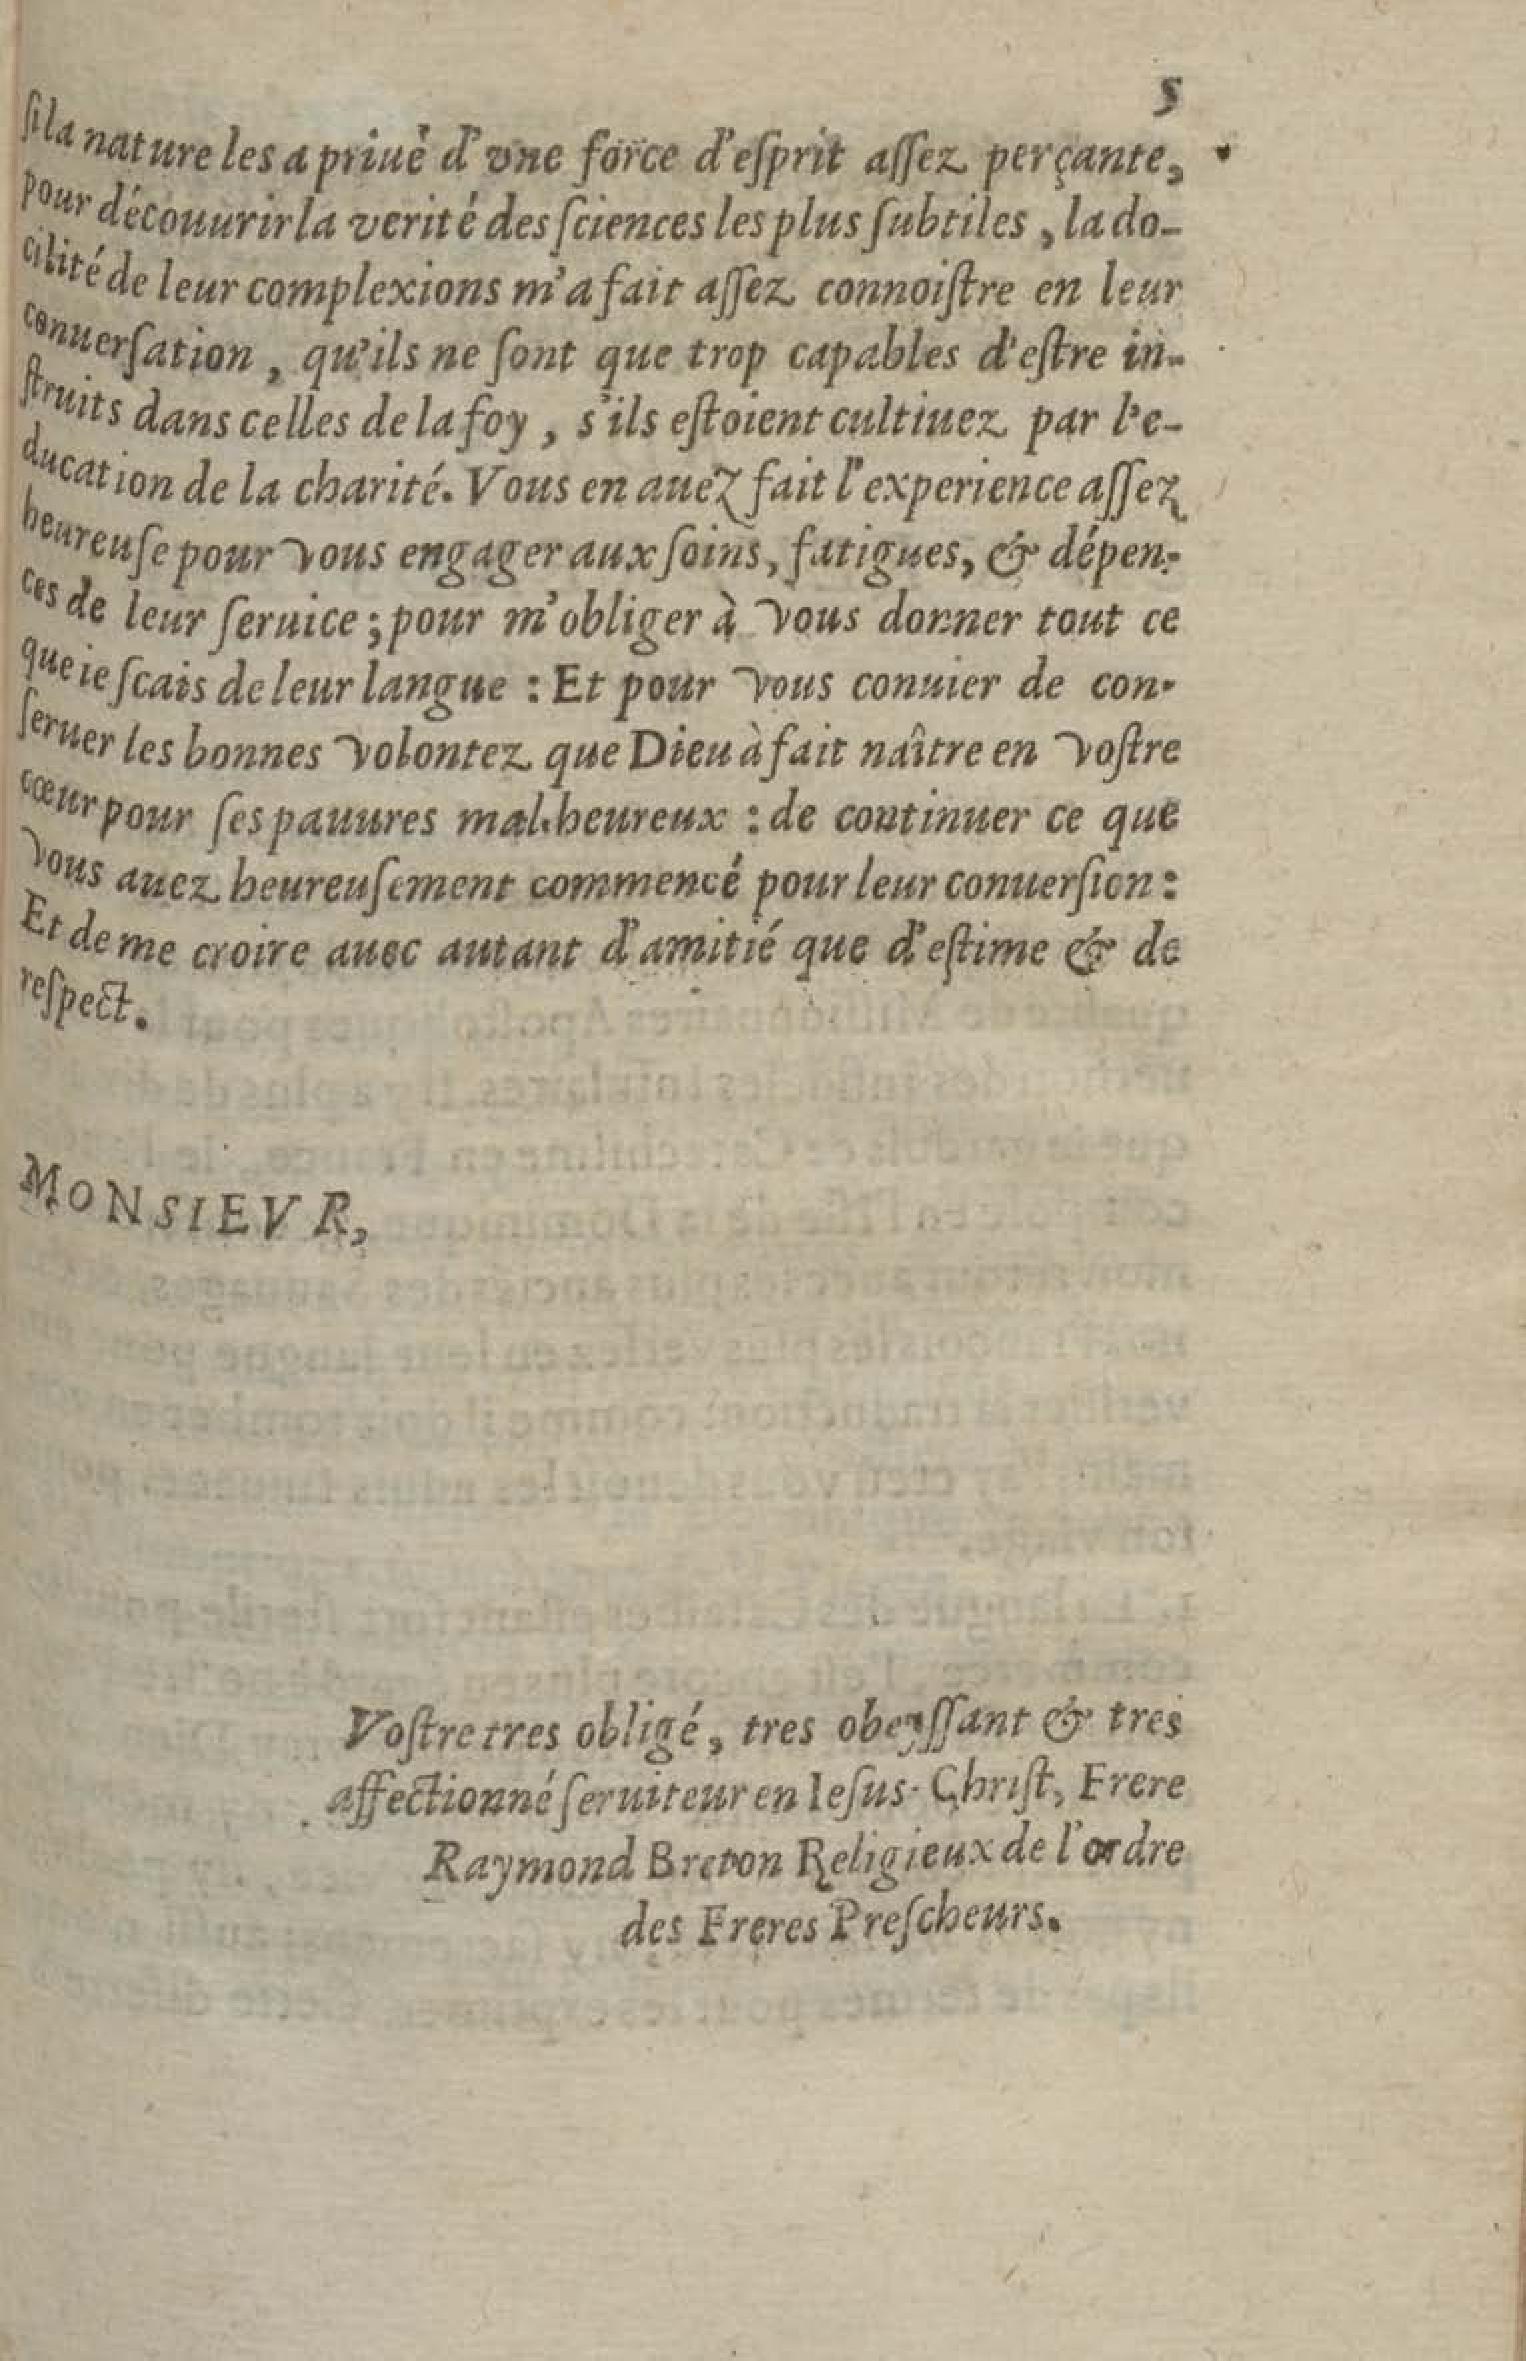 5
ſi la nature les a priué d'vne force d'eſprit aſſez perçante,
pour découurir la verité des ſciences les plus ſubtiles, la do-
cilité de leur complexions m'a fait aſſez connoiſtre en leur
conuerſation, qu'ils ne ſont que trop capables d'eſtre in-
ſtruits dans celles de la foy, s'ils eſtoient cultiuez par l'e-
ducation de la charité. Vous en auez fait l'experience aſſez
heureuſe pour vous engager aux ſoins, fatigues, & dépen-
ces de leur ſeruice; pour m'obliger à vous donner tout ce
que ie ſcais de leur langue : Et pour vous conuier de con-
ſeruer les bonnes volontez que Dieu à fait naître en voſtre
cœur pour ſes pauures malheureux : de continuer ce que
vous auez heureuſement commencé pour leur conuerſion :
Et de me croire auec autant d'amitié que d'eſtime & de
reſpect.
MONSIEVR,
Voſtre tres obligé, tres obeyſſant & tres
affectionné ſeruiteur en Ieſus-Chriſt, Frere
Raymond Breton Religieux de l'ordre
des Freres Preſcheurs.